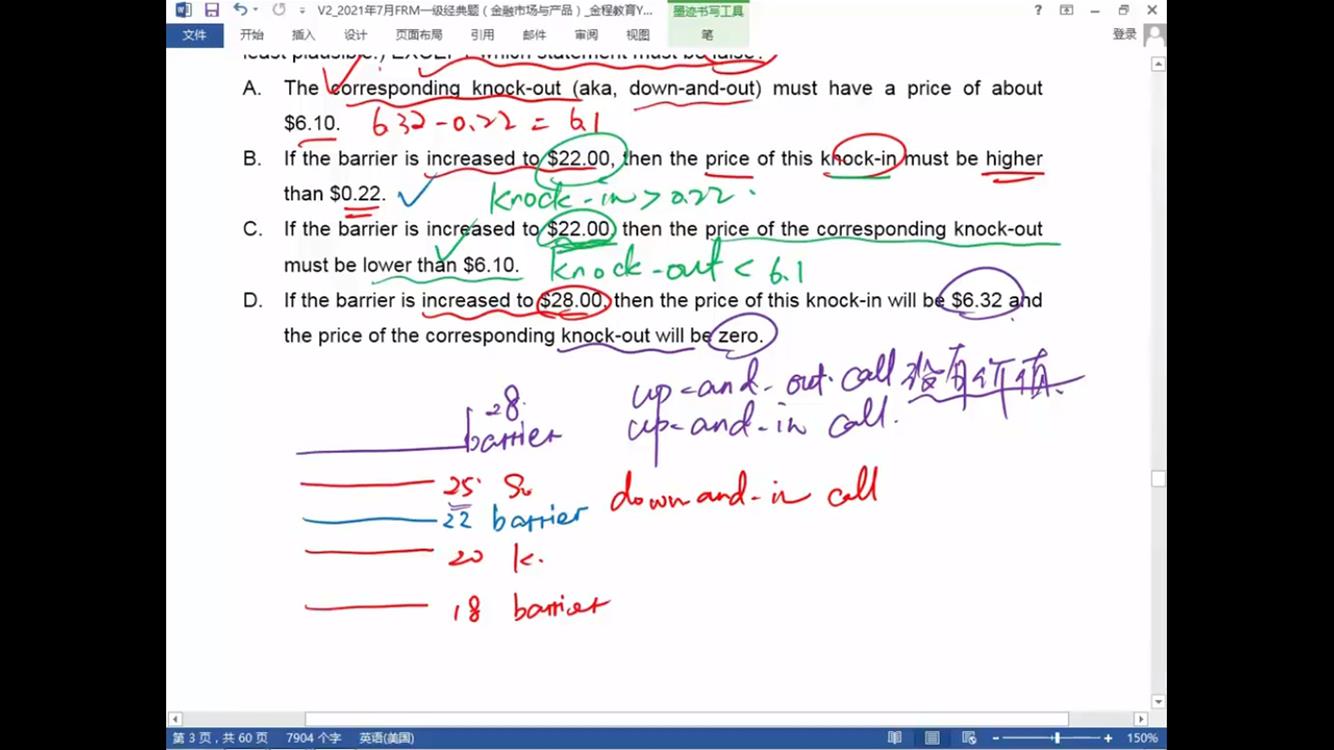 V2_2021年7月FRM一级经典题（金融市场与产品）_金程教育Y...
墨迹书写工具
文件 开始 插入 设计 页面布局 引用 邮件 审阅 视图 笔 登录
least plausible.) EXCEPT which statement must be false?
A. The corresponding knock-out (aka, down-and-out) must have a price of about
$6.10. 6.32-0.22 = 6.1
B. If the barrier is increased to $22.00, then the price of this knock-in must be higher
than $0.22. knock-in > 0.22
C. If the barrier is increased to $22.00 then the price of the corresponding knock-out
must be lower than $6.10. knock-out < 6.1
D. If the barrier is increased to $28.00, then the price of this knock-in will be $6.32 and
the price of the corresponding knock-out will be zero.
up-and-out call 没有价值
28 barrier
up-and-in call.
25 S₀
down and-in call
22 barrier
20 K.
18 barrier
第 3 页，共 60 页 7904 个字 英语(美国) 150%